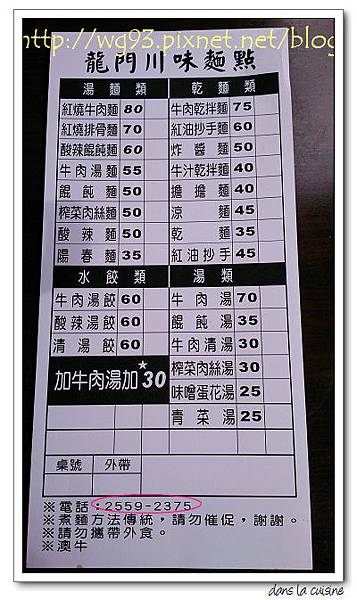 http://wg93.pixnet.net/blog
龍門川味麵點
湯麵類 乾麵類
紅燒牛肉麵 80 牛肉乾拌麵 75
紅燒排骨麵 70 紅油抄手麵 60
酸辣餛飩麵 60 炸醬麵 50
牛肉湯麵 55 牛汁乾拌麵 40
餛飩麵 50 擔擔麵 40
榨菜肉絲麵 50 涼麵 45
酸辣麵 50 乾麵 35
陽春麵 35 紅油抄手 45
水餃類 湯類
牛肉湯餃 60 牛肉湯 70
酸辣湯餃 60 餛飩湯 35
清湯餃 60 牛肉清湯 30
加牛肉湯加★30 榨菜肉絲湯 30
味噌蛋花湯 25
青菜湯 25
桌號 外帶
※電話:2559-2375
※煮麵方法傳統,請勿催促,謝謝。
※請勿攜帶外食。
※澳牛
dans la cuisine